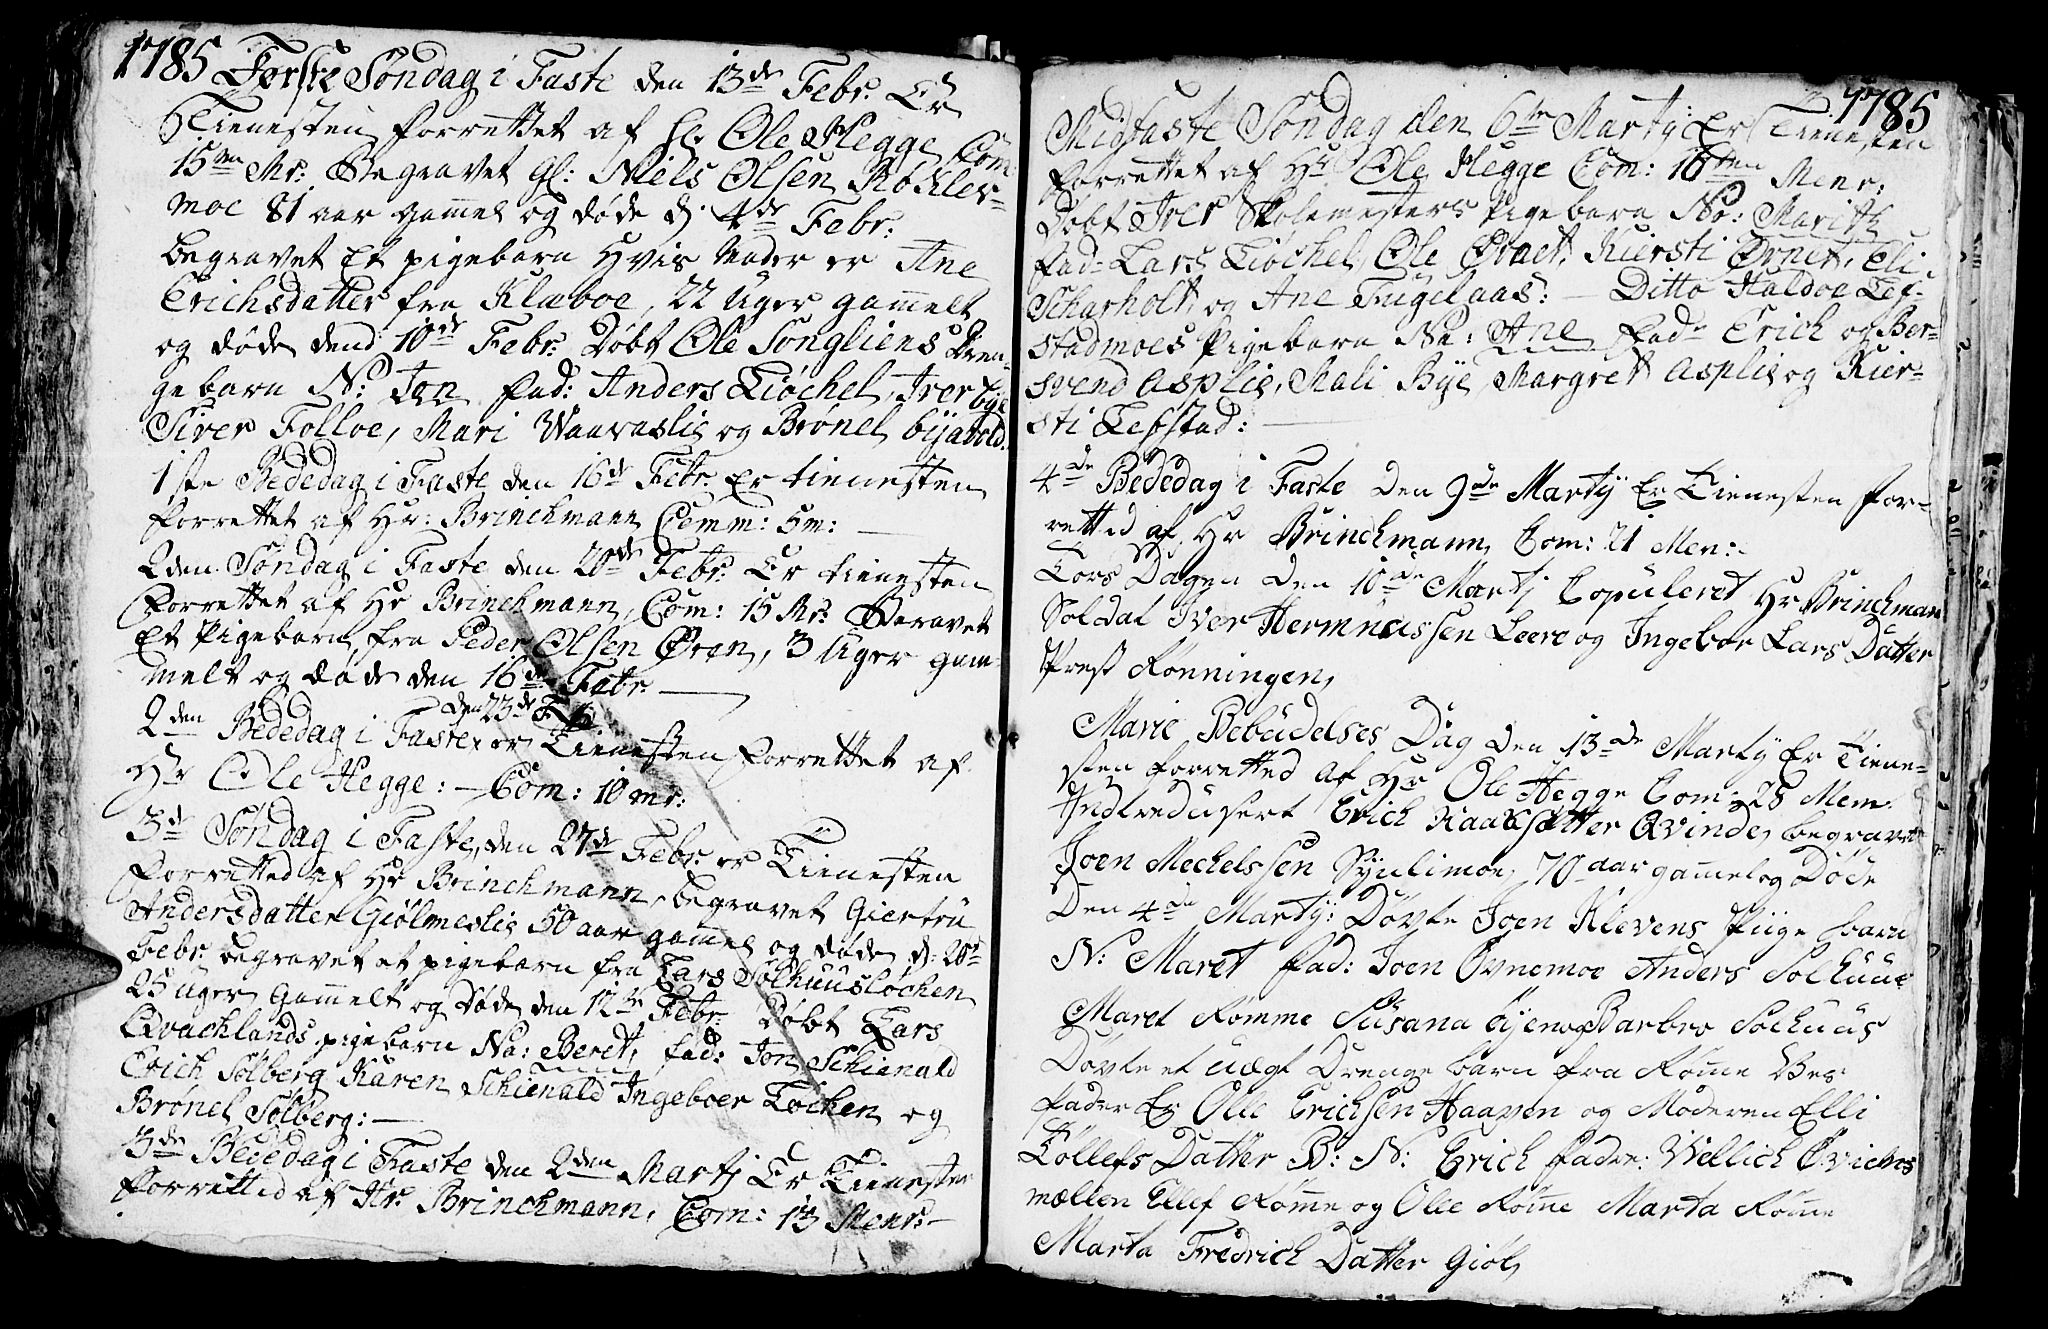 1785 Første Søndag i Faste den 13de Febr. Er
Tienesten forrettet af Hr. Ole Hegge, Com
15ten Mr. Begravet Gl: Niels Olsen Røkler-
moe 81 aar Gammel og døde d. 4de Febr.
begravet Et pigebarn Hvis Moder er Ane
Erichsdatter fra Klæboe, 22 Uger gammelt
og døde dend 10de Febr. Døbt Ole Songliens Dren-
gebarn N: Jon fad: Anders Liøchel, Iver bye
Siver Folloe, Mari Waavaslie og Brønel byavold.
1ste Bededag i Faste den 16de Febr. Er tienesten
forrettet af Hr: Brinchmann, Comm: 5 m:
2den Søndag i Faste den 20de Febr. Er tienesten
forrettet af Hr Brinchmann, Com: 15 Mr. Beravet
Et Pigebarn, fra Peder Olsen Øren, 3 Uger gam-
melt og døde den 16de Febr.
den 23de Feb
2den Bededag i Faste, er Tienesten forrettet af
Hr Ole Hegge: Com: 10 mr:
3de Søndag i Faste, den 27de Febr. er Tienesten
forretted af Hr Brinchmann, begravet Giertru
Andersdatter Giølmeslie 50 aar gammel og døde d: 20de
Febr. begravet et pigebarn fra Lars Solhuusløchen
25 Uger Gammelt og Døde den 12te Febr. Døbt Lars
Qvachlands pigebarn Na: Beret, fad: Jon Schienald
Erich Solberg Karen Schienald Ingeboer Løchen og
Brønel Solberg:
3de Bededag i Faste den 2den Martj Er Tienesten
forretted af Hr. Brinchmann, Com: 13 Menr:
1785
Midfaste Søndag den 6te Martij Er Tienesten
forrettet af Hr Ole Hegge Com: 16ten Menr:
Døbt Iver Skolemesters Pigebarn Na: Marith
fad: Lars Liøchel, Ole Qvaet, Kiersti Ørnet, Eli
Scharholt, og Ane Fugelaas: Ditto Haldoe Lef-
stadmoes Pigebarn Na: Ane fad: Erich og Ber-
svend Asplie, Mali Bye, Margret Asplie og Kier-
sti Lefstad:
4de Bededag i Faste Den 9de Martij Er Tienesten for-
retted af Hr Brinchmann, Com: 21 Men:
Tors Dagen Den 10de Martj Copuleret Hr Brinchman
Soldat Iver Hermnussen Leere og Ingebor Lars Datter
Prest Rønningen,
Marie Bebudelses Dag den 13de Martij Er Tiene-
sten forretted af Hr Ole Hegge Com: 28 Mem
Indtredusert Erich Kaaksætter Qvinde, begravet
Joen Mechelssen Synlimoe, 70 aar gammel og Døde
Den 4de Martij: Døvte Joen Klevens Piige barn
N: Maret fad: Joen Ovnemoe Anders Solhuus
Maret Rømme Susana Øyen og Barbro Solhuus
Døvte et uægt Drenge barn fra Rømme Ves
fader Er Olle Erichsen Haaven og Moderen Elli
Tollefs Datter B: N: Erich fader: Wellich Qvichs
mællen Ellef Rømme og Olle Rømme Marta Rømme
Marta Fredrich Datter Giøl